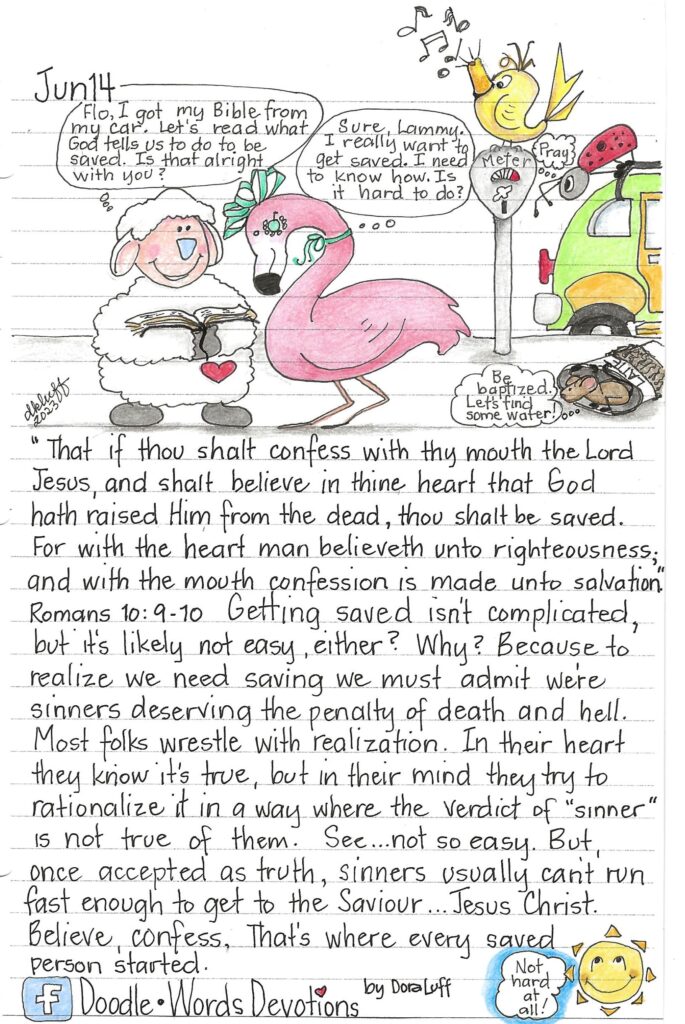 Jun14
Flo, I got my Bible from
my car. Let's read what
God tells us to do to be
saved. Is that alright
with you?
Sure, Lammy.
I really want to
get saved. I need
to know how. Is
it hard to do?
Meter
Pray
Be
baptized.
Let's find
some water!
dkluff
2023
"That if thou shalt confess with thy mouth the Lord
Jesus, and shalt believe in thine heart that God
hath raised Him from the dead, thou shalt be saved.
For with the heart man believeth unto righteousness;
and with the mouth confession is made unto salvation."
Romans 10:9-10 Getting saved isn't complicated,
but it's likely not easy, either? Why? Because to
realize we need saving we must admit we're
sinners deserving the penalty of death and hell.
Most folks wrestle with realization. In their heart
they know it's true, but in their mind they try to
rationalize it in a way where the verdict of "sinner"
is not true of them. See...not so easy. But,
once accepted as truth, sinners usually can't run
fast enough to get to the Saviour...Jesus Christ.
Believe, confess, That's where every saved
person started.
f Doodle•Words Devotions by Dora Luff
Not
hard
at
all!